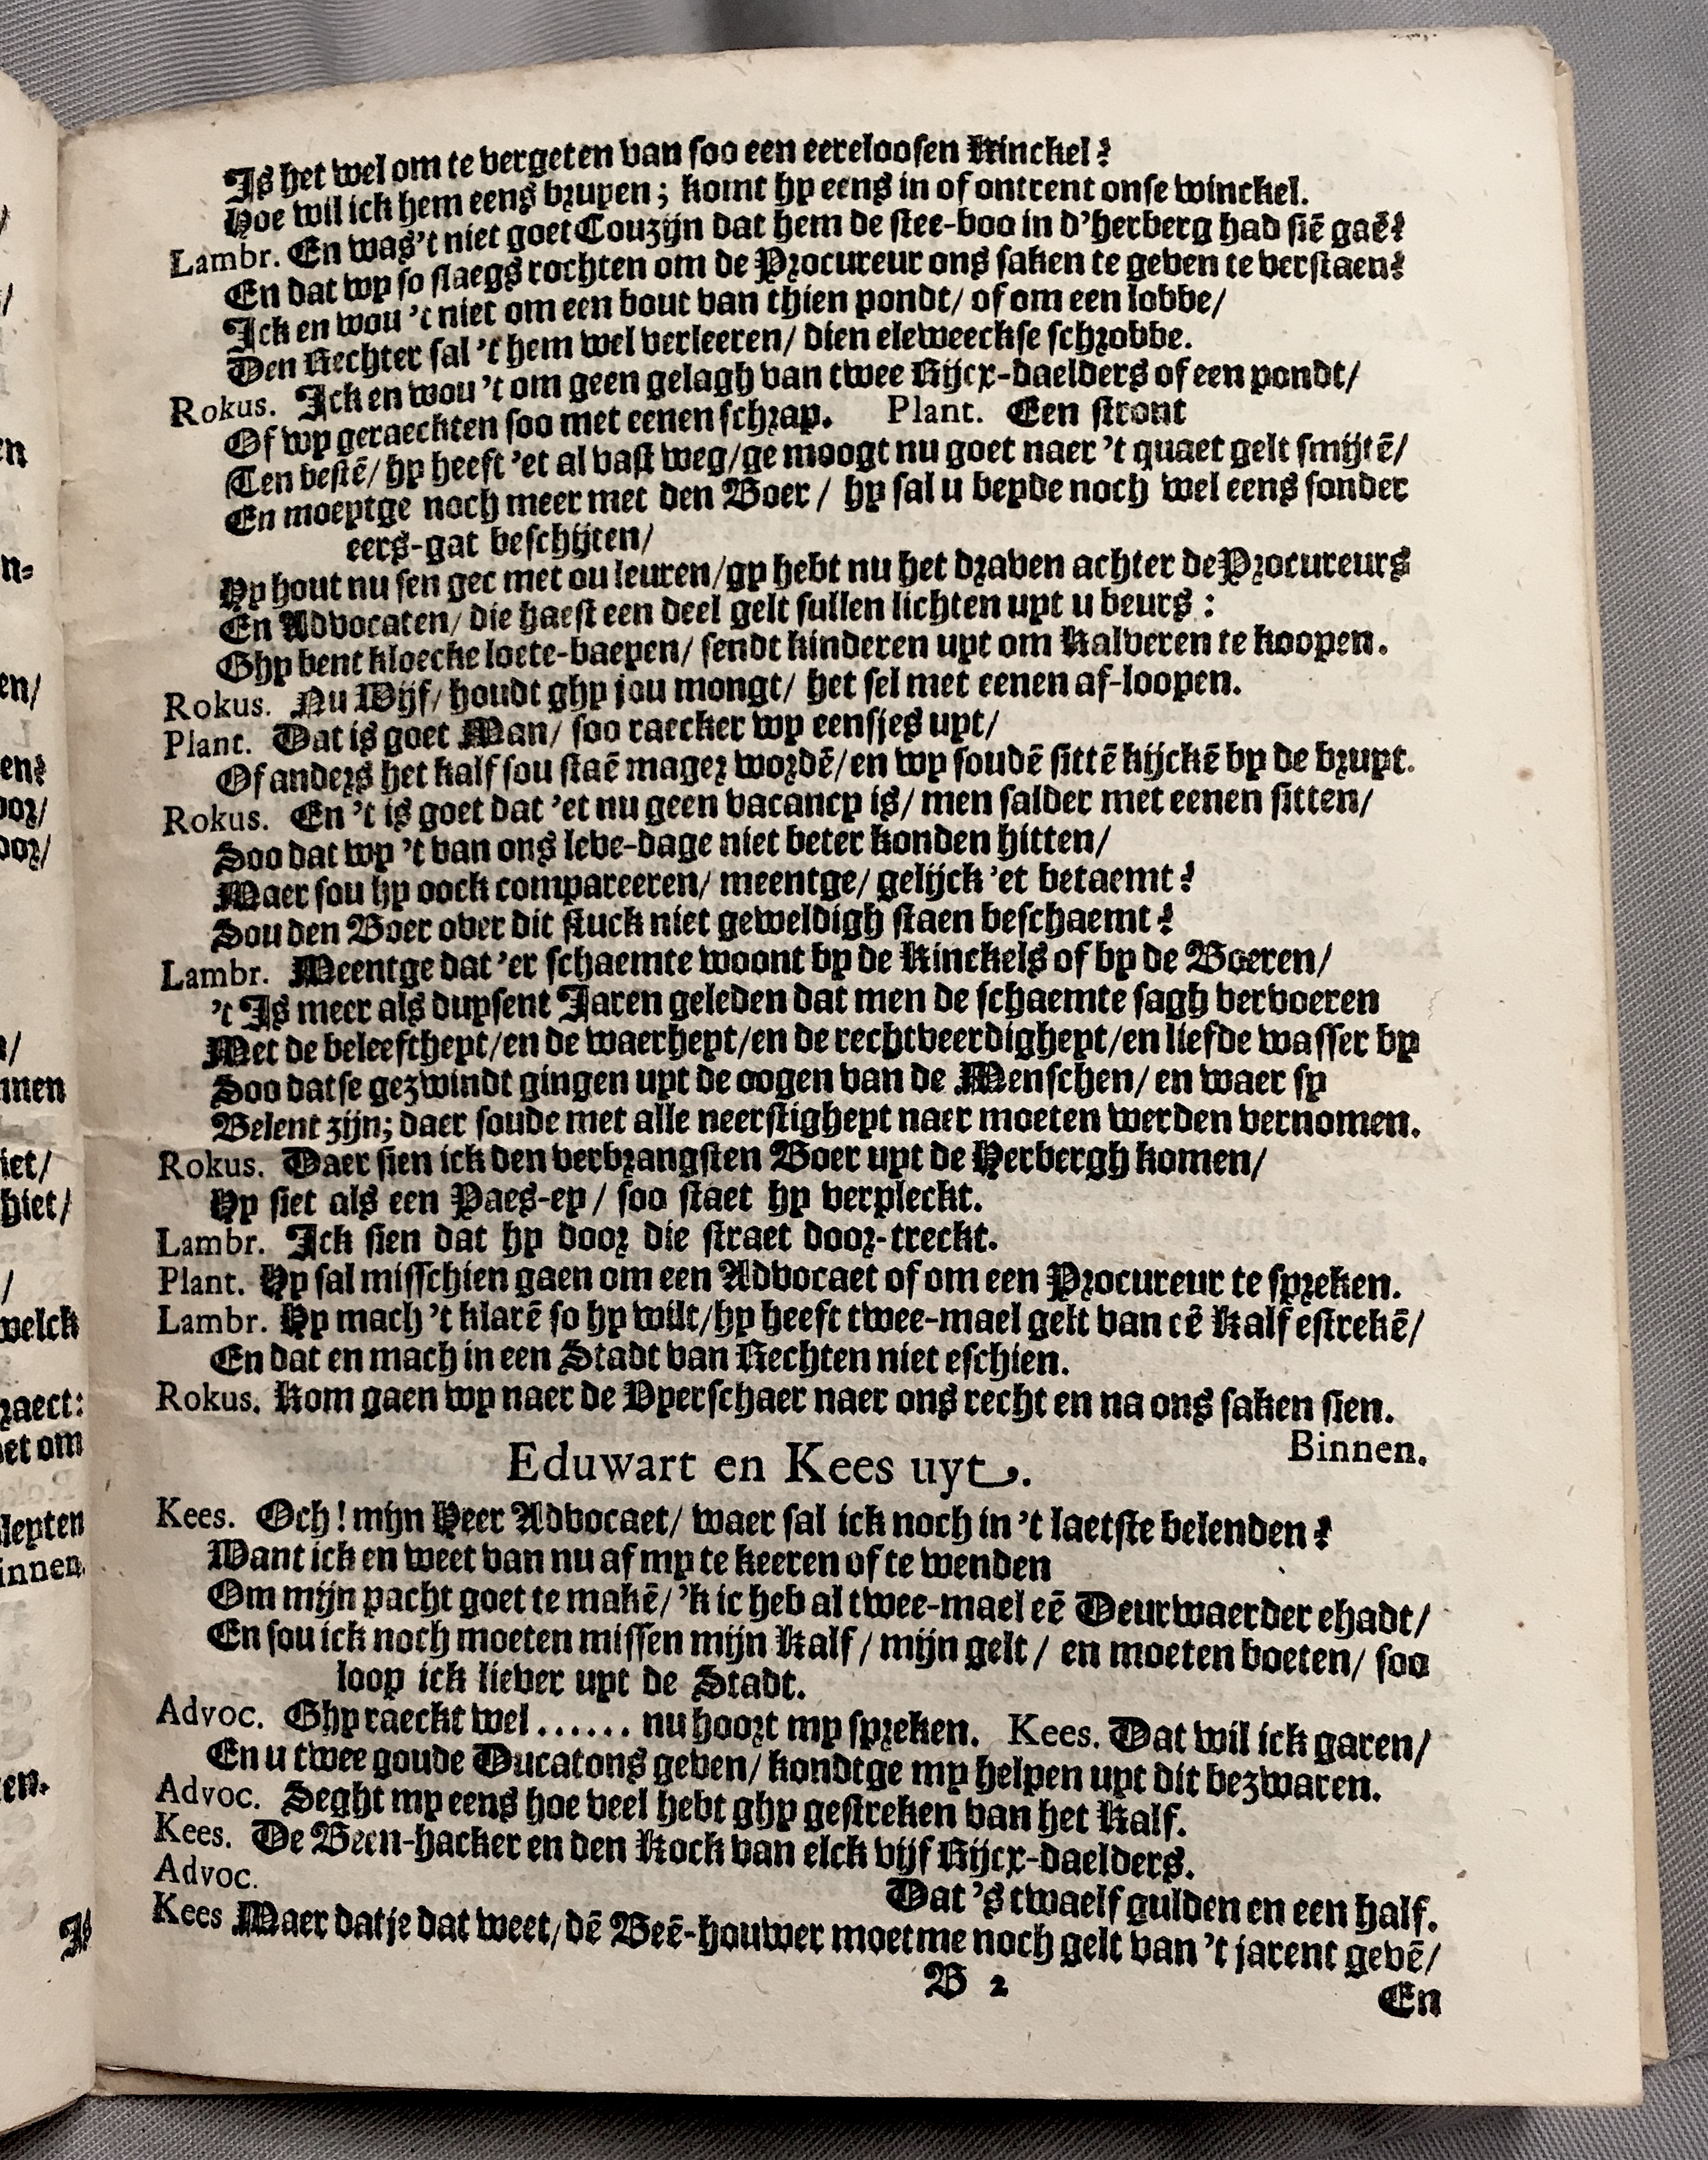 Is het wel om te vergeten van soo een eereloosen Kinckel?
Hoe wil ick hem eens bruyen; komt hy eens in of ontrent onse winckel.
Lambr. En was't niet goet Couzijn dat hem de stee-boo in d'herberg had siē gaē?
En dat wy so slaegs rochten om de Procureur ons saken te geven te verstaen?
Ick en wou 't niet om een bout van thien pondt/ of om een lobbe/
Den Rechter sal 't hem wel verleeren/ dien eleweeckse schrobbe.
Rokus. Ick en wou 't om geen gelagh van twee Rijcx-daelders of een pondt/
Of wy geraeckten soo met eenen schrap. Plant. Een stront
Ten bestē/ hy heeft 'et al vast weg/ge moogt nu goet naer 't quaet gelt smijtē/
En moeytge noch meer met den Boer/ hy sal u beyde noch wel eens sonder
eers-gat beschijten/
Hy hout nu sen gec met ou leuren/gy hebt nu het draven achter de Procureurs
En Advocaten/ die haest een deel gelt sullen lichten uyt u beurs:
Ghy bent kloecke loete-baeyen/ sendt kinderen uyt om Kalveren te koopen.
Rokus. Nu Wijf/ houdt ghy jou mongt/ het sel met eenen af-loopen.
Plant. Dat is goet Man/ soo raecker wy eensjes uyt/
Of anders het kalf sou staē mager wordē/en wy soudē sittē kijckē by de bruyt.
Rokus. En 't is goet dat 'et nu geen vacancy is/ men salder met eenen sitten/
Soo dat wy 't van ons leve-dage niet beter konden hitten/
Maer sou hy oock compareeren/ meentge/ gelijck 'et betaemt?
Sou den Boer over dit stuck niet geweldigh staen beschaemt?
Lambr. Meentge dat 'er schaemte woont by de Kinckels of by de Boeren/
't Is meer als duysent Jaren geleden dat men de schaemte sagh vervoeren
Met de beleeftheyt/en de waerheyt/en de rechtveerdigheyt/en liefde wasser by
Soo datse gezwindt gingen uyt de oogen van de Menschen/ en waer sy
Belent zijn; daer soude met alle neerstigheyt naer moeten werden vernomen.
Rokus. Daer sien ick den verbrangsten Boer uyt de Herbergh komen/
Hy siet als een Paes-ey/ soo staet hy verpleckt.
Lambr. Ick sien dat hy door die straet door-treckt.
Plant. Hy sal misschien gaen om een Advocaet of om een Procureur te spreken.
Lambr. Hy mach 't klarē so hy wilt/hy heeft twee-mael gelt van eē Kalf estrekē/
En dat en mach in een Stadt van Rechten niet eschien.
Rokus. Kom gaen wy naer de Vyerschaer naer ons recht en na ons saken sien.
Binnen.
Eduwart en Kees uyt.
Kees. Och! mijn Heer Advocaet/ waer sal ick noch in 't laetste belenden?
Want ick en weet van nu af my te keeren of te wenden
Om mijn pacht goet te makē/ 'k ic heb al twee-mael eē Deurwaerder ehadt/
En sou ick noch moeten missen mijn Kalf/ mijn gelt/ en moeten boeten/ soo
loop ick liever uyt de Stadt.
Advoc. Ghy raeckt wel...... nu hoort my spreken. Kees. Dat wil ick garen/
En u twee goude Ducatons geven/ kondtge my helpen uyt dit bezwaren.
Advoc. Seght my eens hoe veel hebt ghy gestreken van het Kalf.
Kees. De Been-hacker en den Kock van elck vijf Rijcx-daelders.
Advoc. Dat 's twaelf gulden en een half.
Kees Maer datje dat weet/dē Beē-houwer moet me noch gelt van 't jarent gevē/
B 2
En